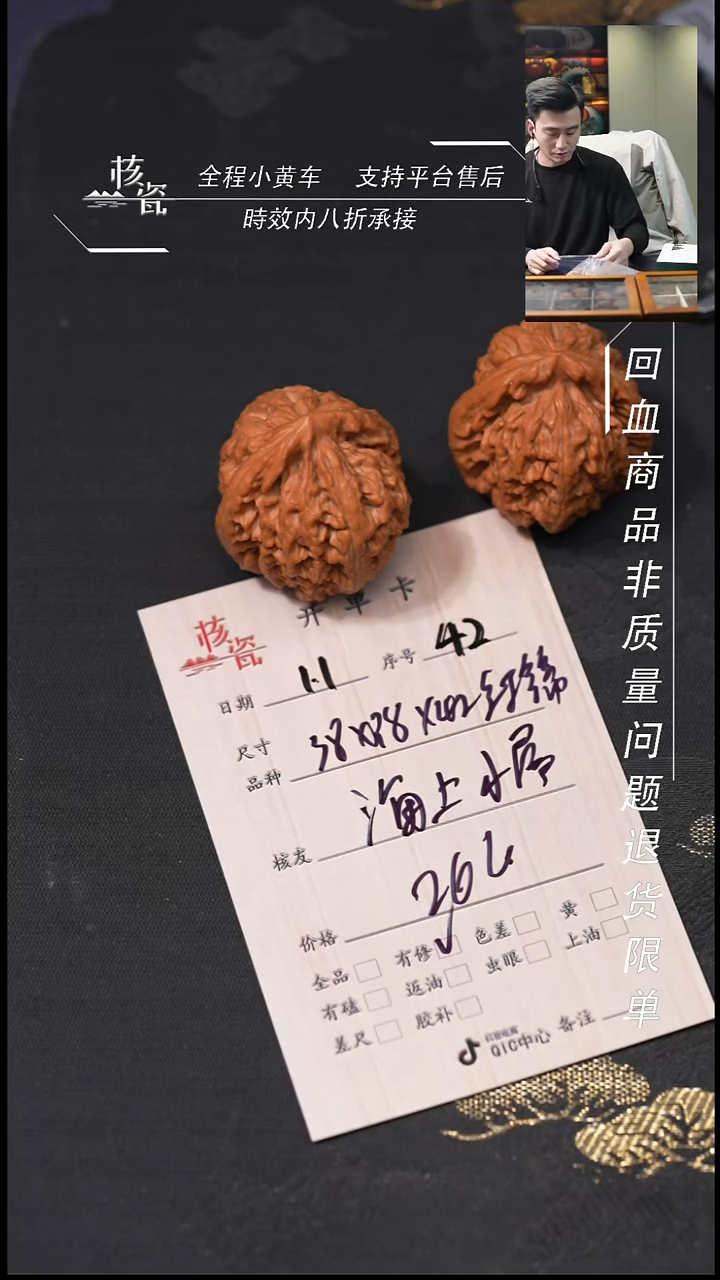 核瓷
全程小黄车 支持平台售后
時效内八折承接
回血商品非质量问题退货限单
开单卡
核瓷
日期 1.1 序号 42
尺寸
品种
海上
核友
价格
全品 有修 色差 黄
有磕 返油 虫眼 上油
差尺 胶补
抖音电商
QIC中心 备注